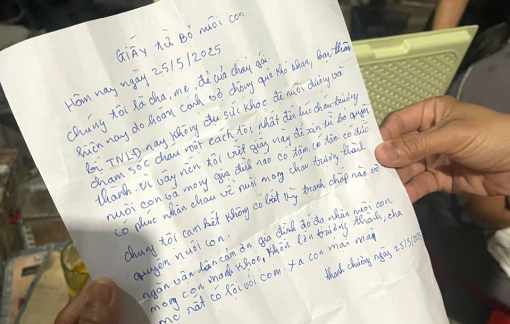 Giấy từ Bỏ nuôi con
Hôm nay ngày 25/5/2025
chúng tôi là cha, mẹ, đẻ của cháy gái
hiện nay do hoàn cảnh vợ chồng quá khó khăn, bản thân
bị TNLĐ nay không đủ sức khoẻ để nuôi dưỡng và
chăm sóc cháu một cách tốt nhất đến lúc cháu trưởng
thành. vì vậy nên tôi viết giấy này để xin từ bỏ quyền
nuôi con và mong gia đình nào có tâm, có tầm có đức
có phúc nhận cháu về nuôi mong cháu trưởng thành
chúng tôi cam kết không có bất kỳ tranh chấp nào với
quyền nuôi con.
ngàn vân lần cảm ơn gia đình đó đã nhận nuôi con
mong con mạnh khoẻ, khôn lớn trưởng thành, cha
mẹ rất có lỗi với con. xa con mãi mãi
thanh chương ngày 25/5/2025